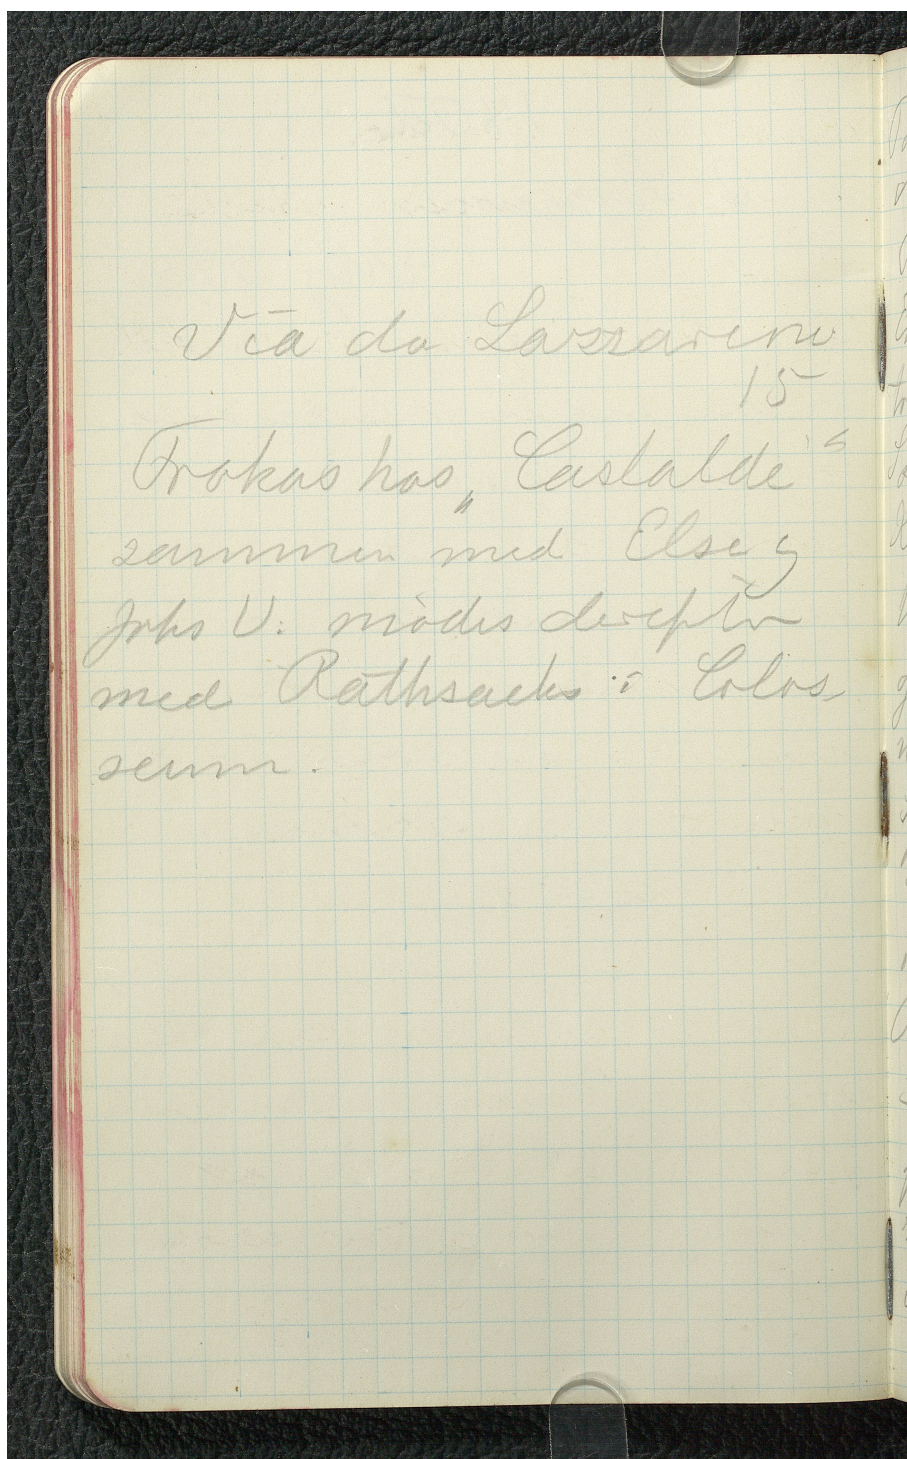 Via da Lazzareno
15
Frokost hos „Castaldi“
sammen med Else og
Johs V. mödes derefter
med Rathsacks i Colos-
seum.